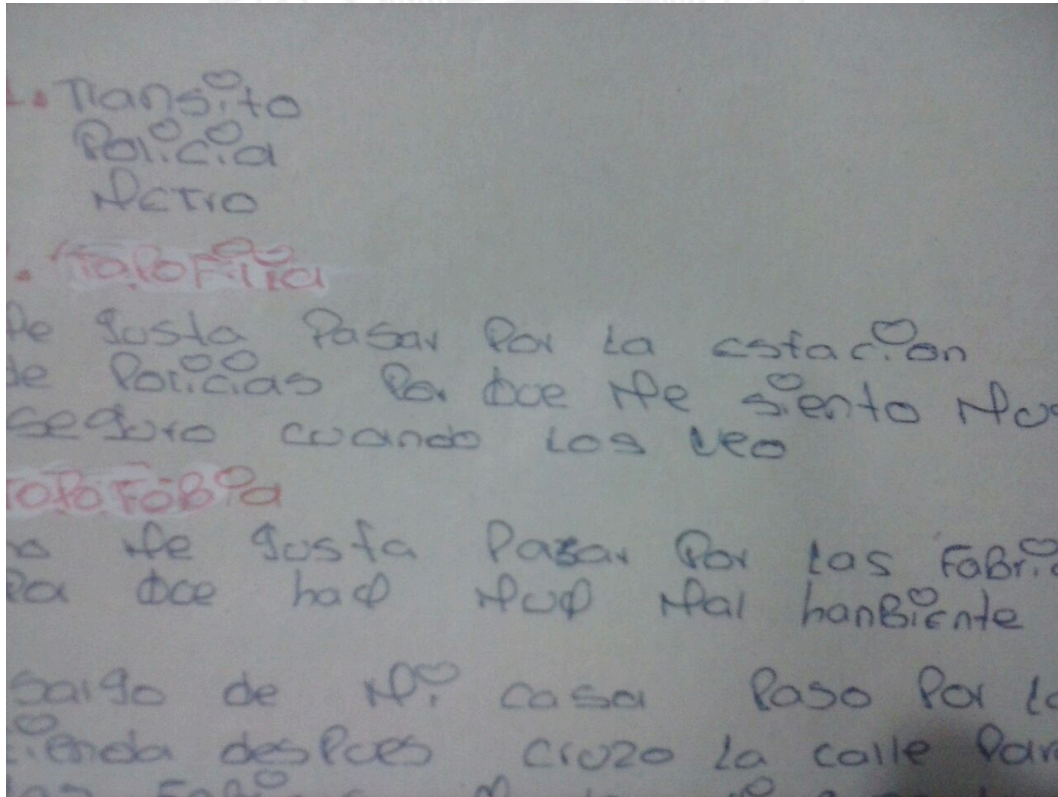 1. Transito
Policia
Metro
. Topofilia
Me gusta Pasar Por la estacion
de Policias Por que Me siento
seguro cuando los veo
TOPOFOBia
no Me gusta Pasar Por las
Por que hay Muy Mal hanBiente
Salgo de Mi casa Paso Por la
tienda desPues cruzo la calle Para
las